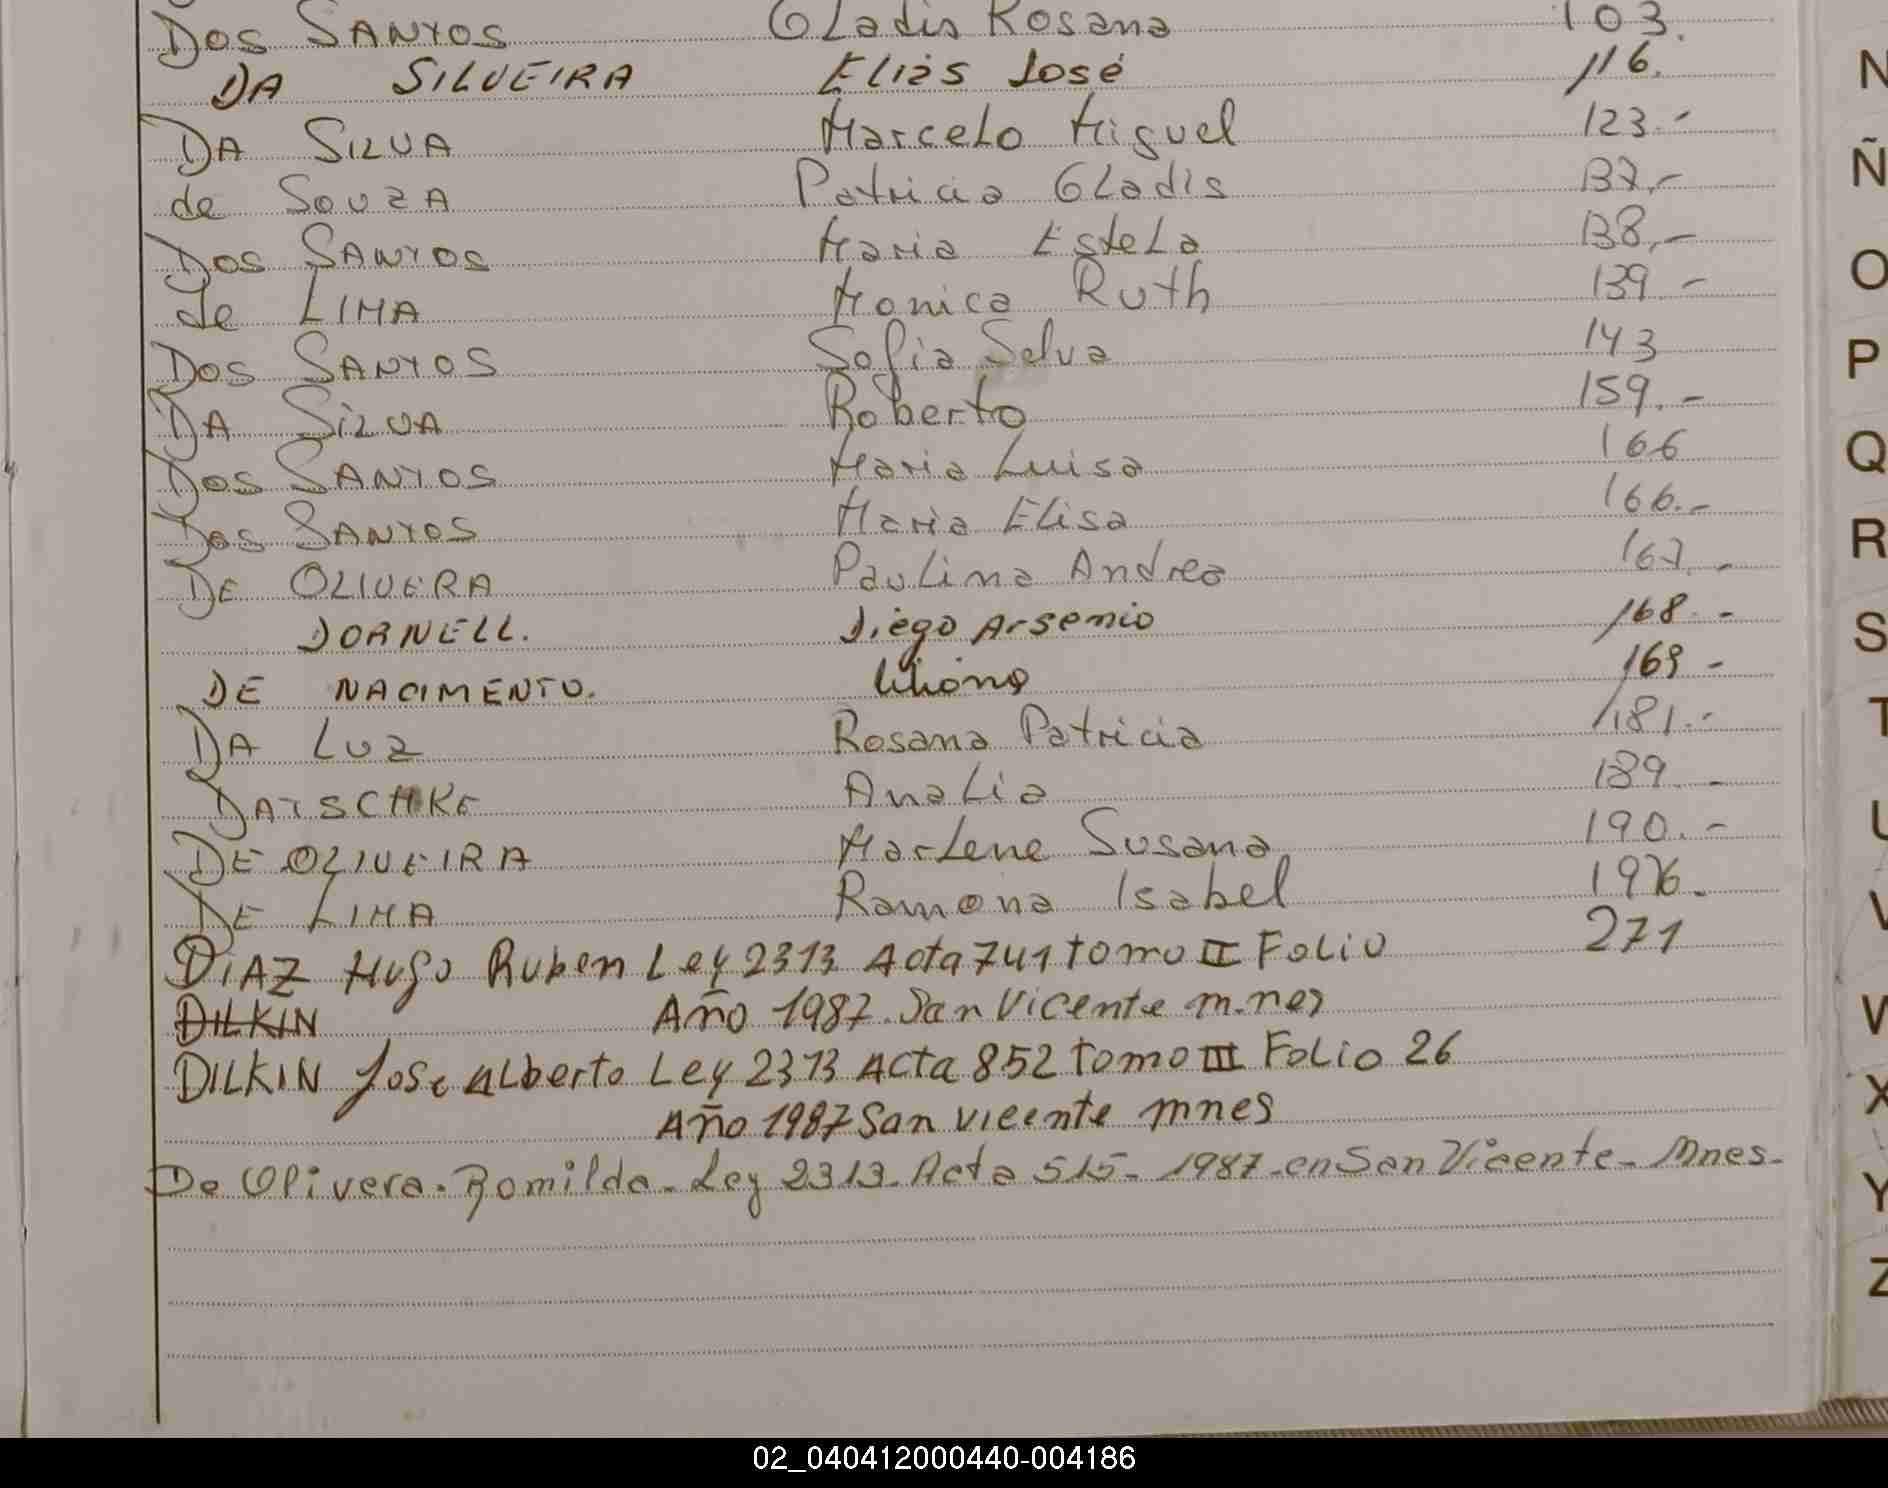 Dos SANTOS Gladis Rosana 103.
DA SILVEIRA Eliàs José 116.
DA SILVA Marcelo Miguel 123.-
de SOUZA Patricia Gladis 137.-
Dos SANTOS Maria Estela 138.-
de LIMA Monica Ruth 139.-
Dos SANTOS Sofia Selva 143
DA SiLVA Roberto 159.-
Dos SANTOS Maria Luisa 166
Dos SANTOS Maria Elisa 166.-
DE OLIVERA Paulina Andrea 167.-
DORNELL. Diego Arsenio 168.-
DE NACIMENTO. Liliana 169-
DA LUZ Rosana Patricia 181.-
DATSCHKE Analia 189.-
DE OLIVEIRA Marlene Susana 190.-
DE LIMA Ramona Isabel 196.
DiAZ Hugo Ruben Ley 2313 Acta 741 tomo II Folio 271
DILKIN Año 1987. San Vicente m.nes
DILKIN Jose Alberto Ley 2313 Acta 852 tomo III Folio 26
Año 1987 San vicente mnes
De Olivera. Romilda. Ley 2313. Acta 515- 1987-en San Vicente- Mnes-
N
Ñ
O
P
Q
R
S
T
U
V
W
X
Y
Z
02_040412000440-004186